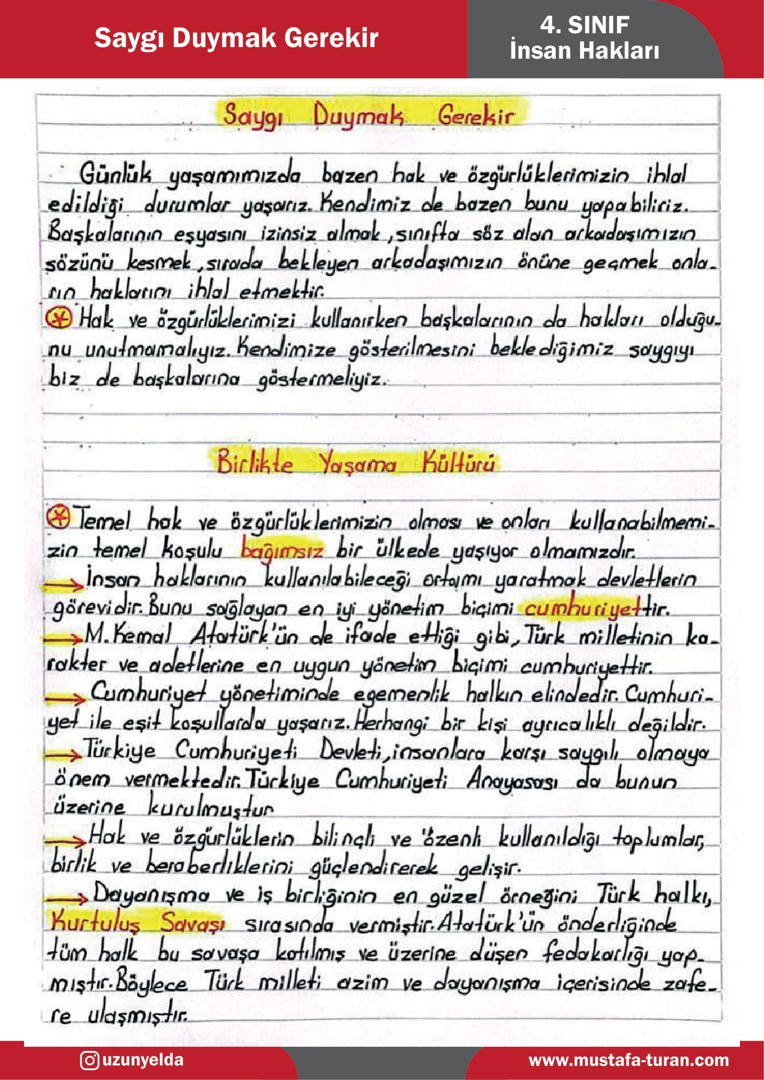 Saygı Duymak Gerekir
4. SINIF
İnsan Hakları
Saygı Duymak Gerekir
Günlük yaşamımızda bazen hak ve özgürlüklerimizin ihlal
edildiği durumlar yaşarız. Kendimiz de bazen bunu yapabiliriz.
Başkalarının eşyasını izinsiz almak, sınıfta söz alan arkadaşımızın
sözünü kesmek, sırada bekleyen arkadaşımızın önüne geçmek onla-
rın haklarını ihlal etmektir.
Hak ve özgürlüklerimizi kullanırken başkalarının da hakları olduğu-
nu unutmamalıyız. Kendimize gösterilmesini beklediğimiz saygıyı
biz de başkalarına göstermeliyiz.
Birlikte Yaşama Kültürü
Temel hak ve özgürlüklerimizin olması ve onları kullanabilmemi-
zin temel koşulu bağımsız bir ülkede yaşıyor olmamızdır.
→ İnsan haklarının kullanılabileceği ortamı yaratmak devletlerin
görevidir. Bunu sağlayan en iyi yönetim biçimi cumhuriyettir.
→ M. Kemal Atatürk'ün de ifade ettiği gibi, Türk milletinin ka-
rakter ve adetlerine en uygun yönetim biçimi cumhuriyettir.
→ Cumhuriyet yönetiminde egemenlik halkın elindedir. Cumhuri-
yet ile eşit koşullarda yaşarız. Herhangi bir kişi ayrıcalıklı değildir.
→ Türkiye Cumhuriyeti Devleti, insanlara karşı saygılı olmaya
önem vermektedir. Türkiye Cumhuriyeti Anayasası da bunun
üzerine kurulmuştur
→ Hak ve özgürlüklerin bilinçli ve özenli kullanıldığı toplumlar,
birlik ve beraberliklerini güçlendirerek gelişir.
→ Dayanışma ve iş birliğinin en güzel örneğini Türk halkı,
Kurtuluş Savaşı sırasında vermiştir. Atatürk'ün önderliğinde
tüm halk bu savaşa katılmış ve üzerine düşen fedakarlığı yap-
mıştır. Böylece Türk milleti azim ve dayanışma içerisinde zafe-
re ulaşmıştır.
uzunyelda
www.mustafa-turan.com